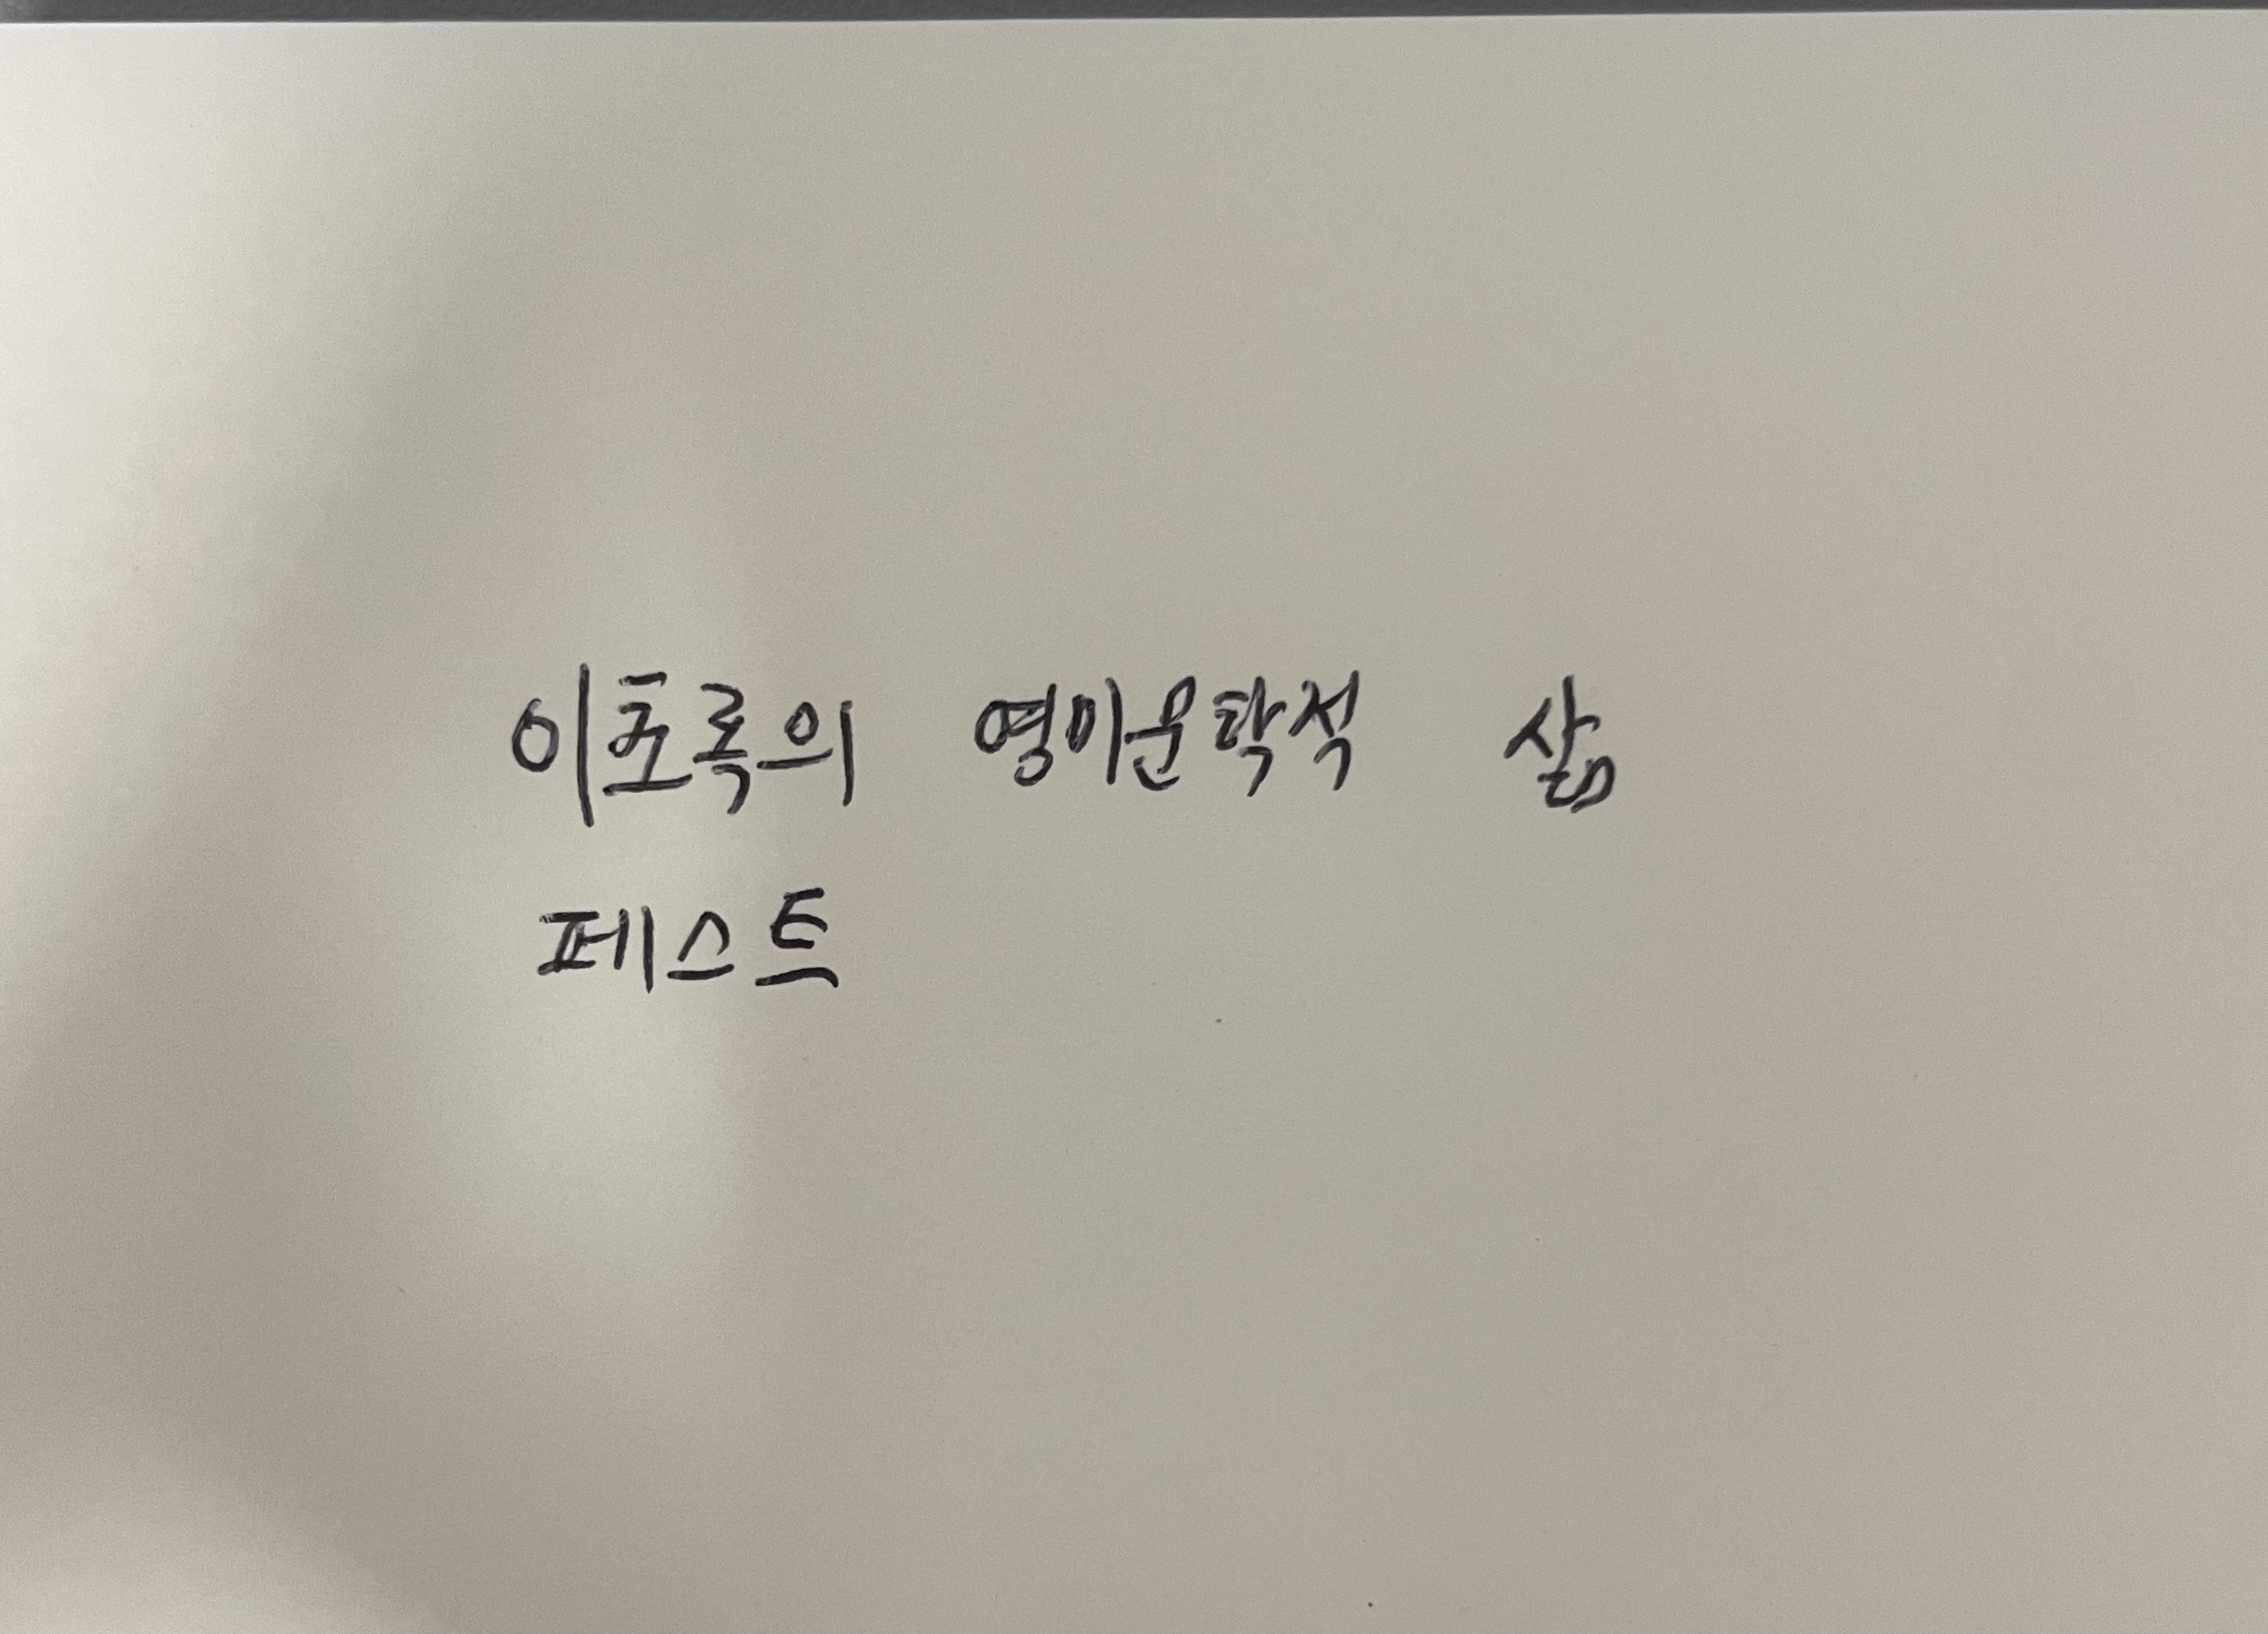 이초록의 영미문학적 삶
페스트